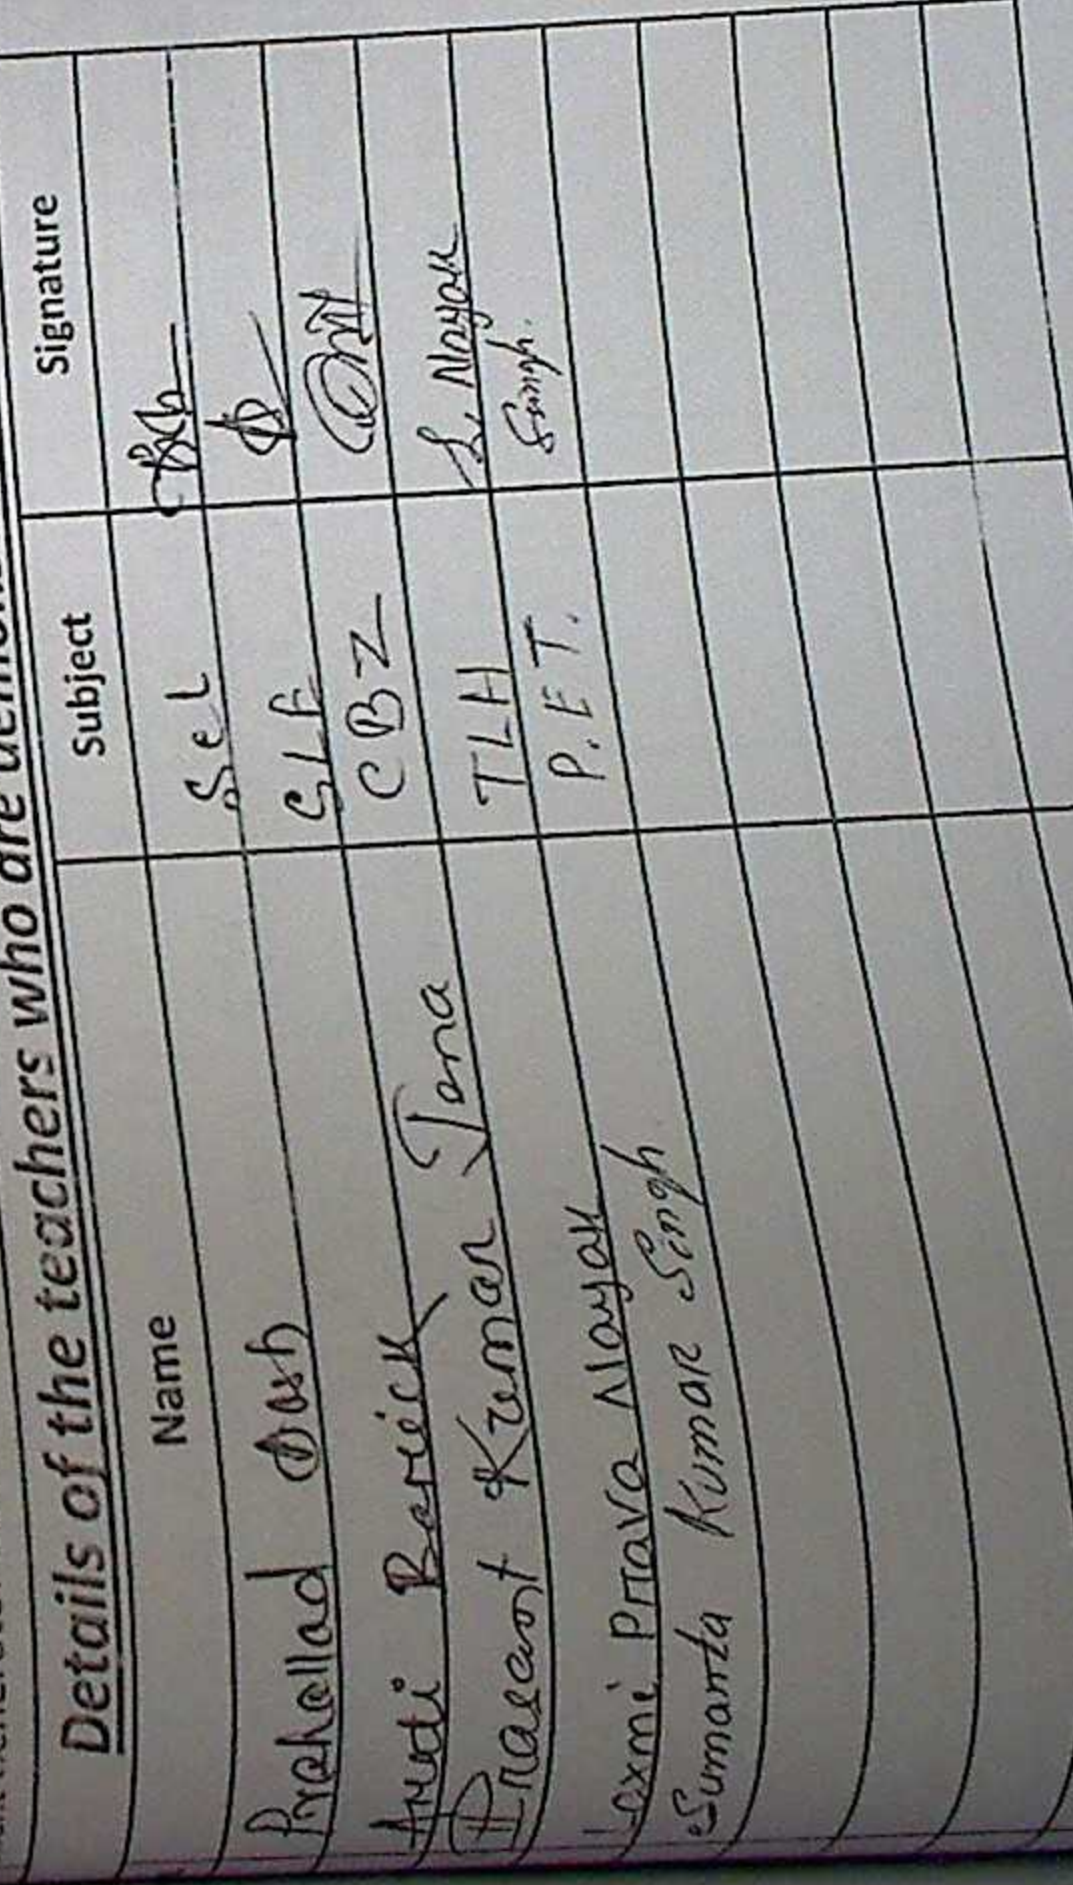 Details of the teachers who are
Name Subject Signature
Prahallad Dash Sel
Arudi Barick SLF
Prasant Kumar Jena CBZ
Laxmi Prava Nayak TLH L. Nayak
Sumanta Kumar Singh P.E.T. Singh.